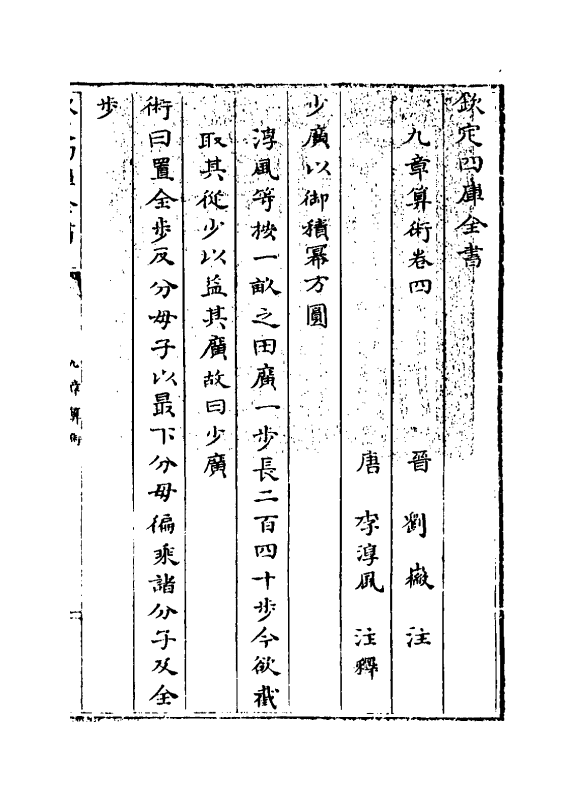 欽定四庫全書
九章算術卷四
晉 劉徽 注
唐 李淳風 注釋
少廣以御積冪方圓
淳風等按一畝之田廣一步長二百四十步今欲截
取其從少以益其廣故曰少廣
術曰置全步及分母子以最下分母徧乘諸分子及全
步
九章算術